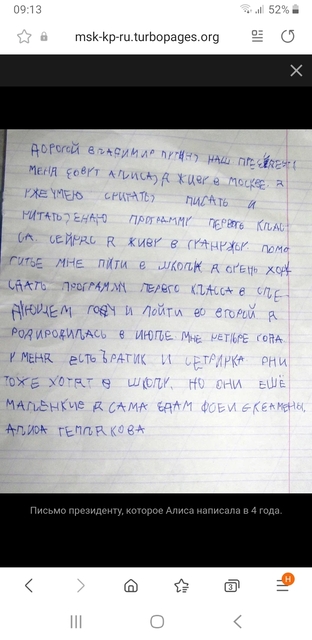 09:13
52%
msk-kp-ru.turbopages.org
ДОРОГОЙ ВЛАДИМИР ПУТИН НАШ
МЕНЯ ЗОВУТ АЛИСА Я ЖИВУ В МОСКВЕ. Я
УЖЕ УМЕЮ СЧИТАТЬ ПИСАТЬ И
ЧИТАТЬ ЗНАЮ ПРОГРАММУ ПЕРВОГО КЛАС-
СА. СЕЙЧАС Я ЖИВУ В ПОМО
ГИТЬЕ МНЕ ПЙТИ В ШКОЛУ Я ОЧЕНЬ ХОЧУ
СДАТЬ ПРОГРАММУ ПЕРВОГО КЛАССА В СЛЕ-
ДУЮЩЕМ ГОДУ И ПОЙТИ ВО ВТОРОЙ Я
В ИЮЛЕ МНЕ
У МЕНЯ ЕСТЬ БРАТИК И ОНИ
ТОЖЕ ХОТЯТ В ШКОЛУ. НО ОНИ ЕЩЁ
МАЛЕНКИЕ Я САМА ЗДАМ
АЛИСА ТЕПЛЯКОВА
Письмо президенту, которое Алиса написала в 4 года.
3
Н